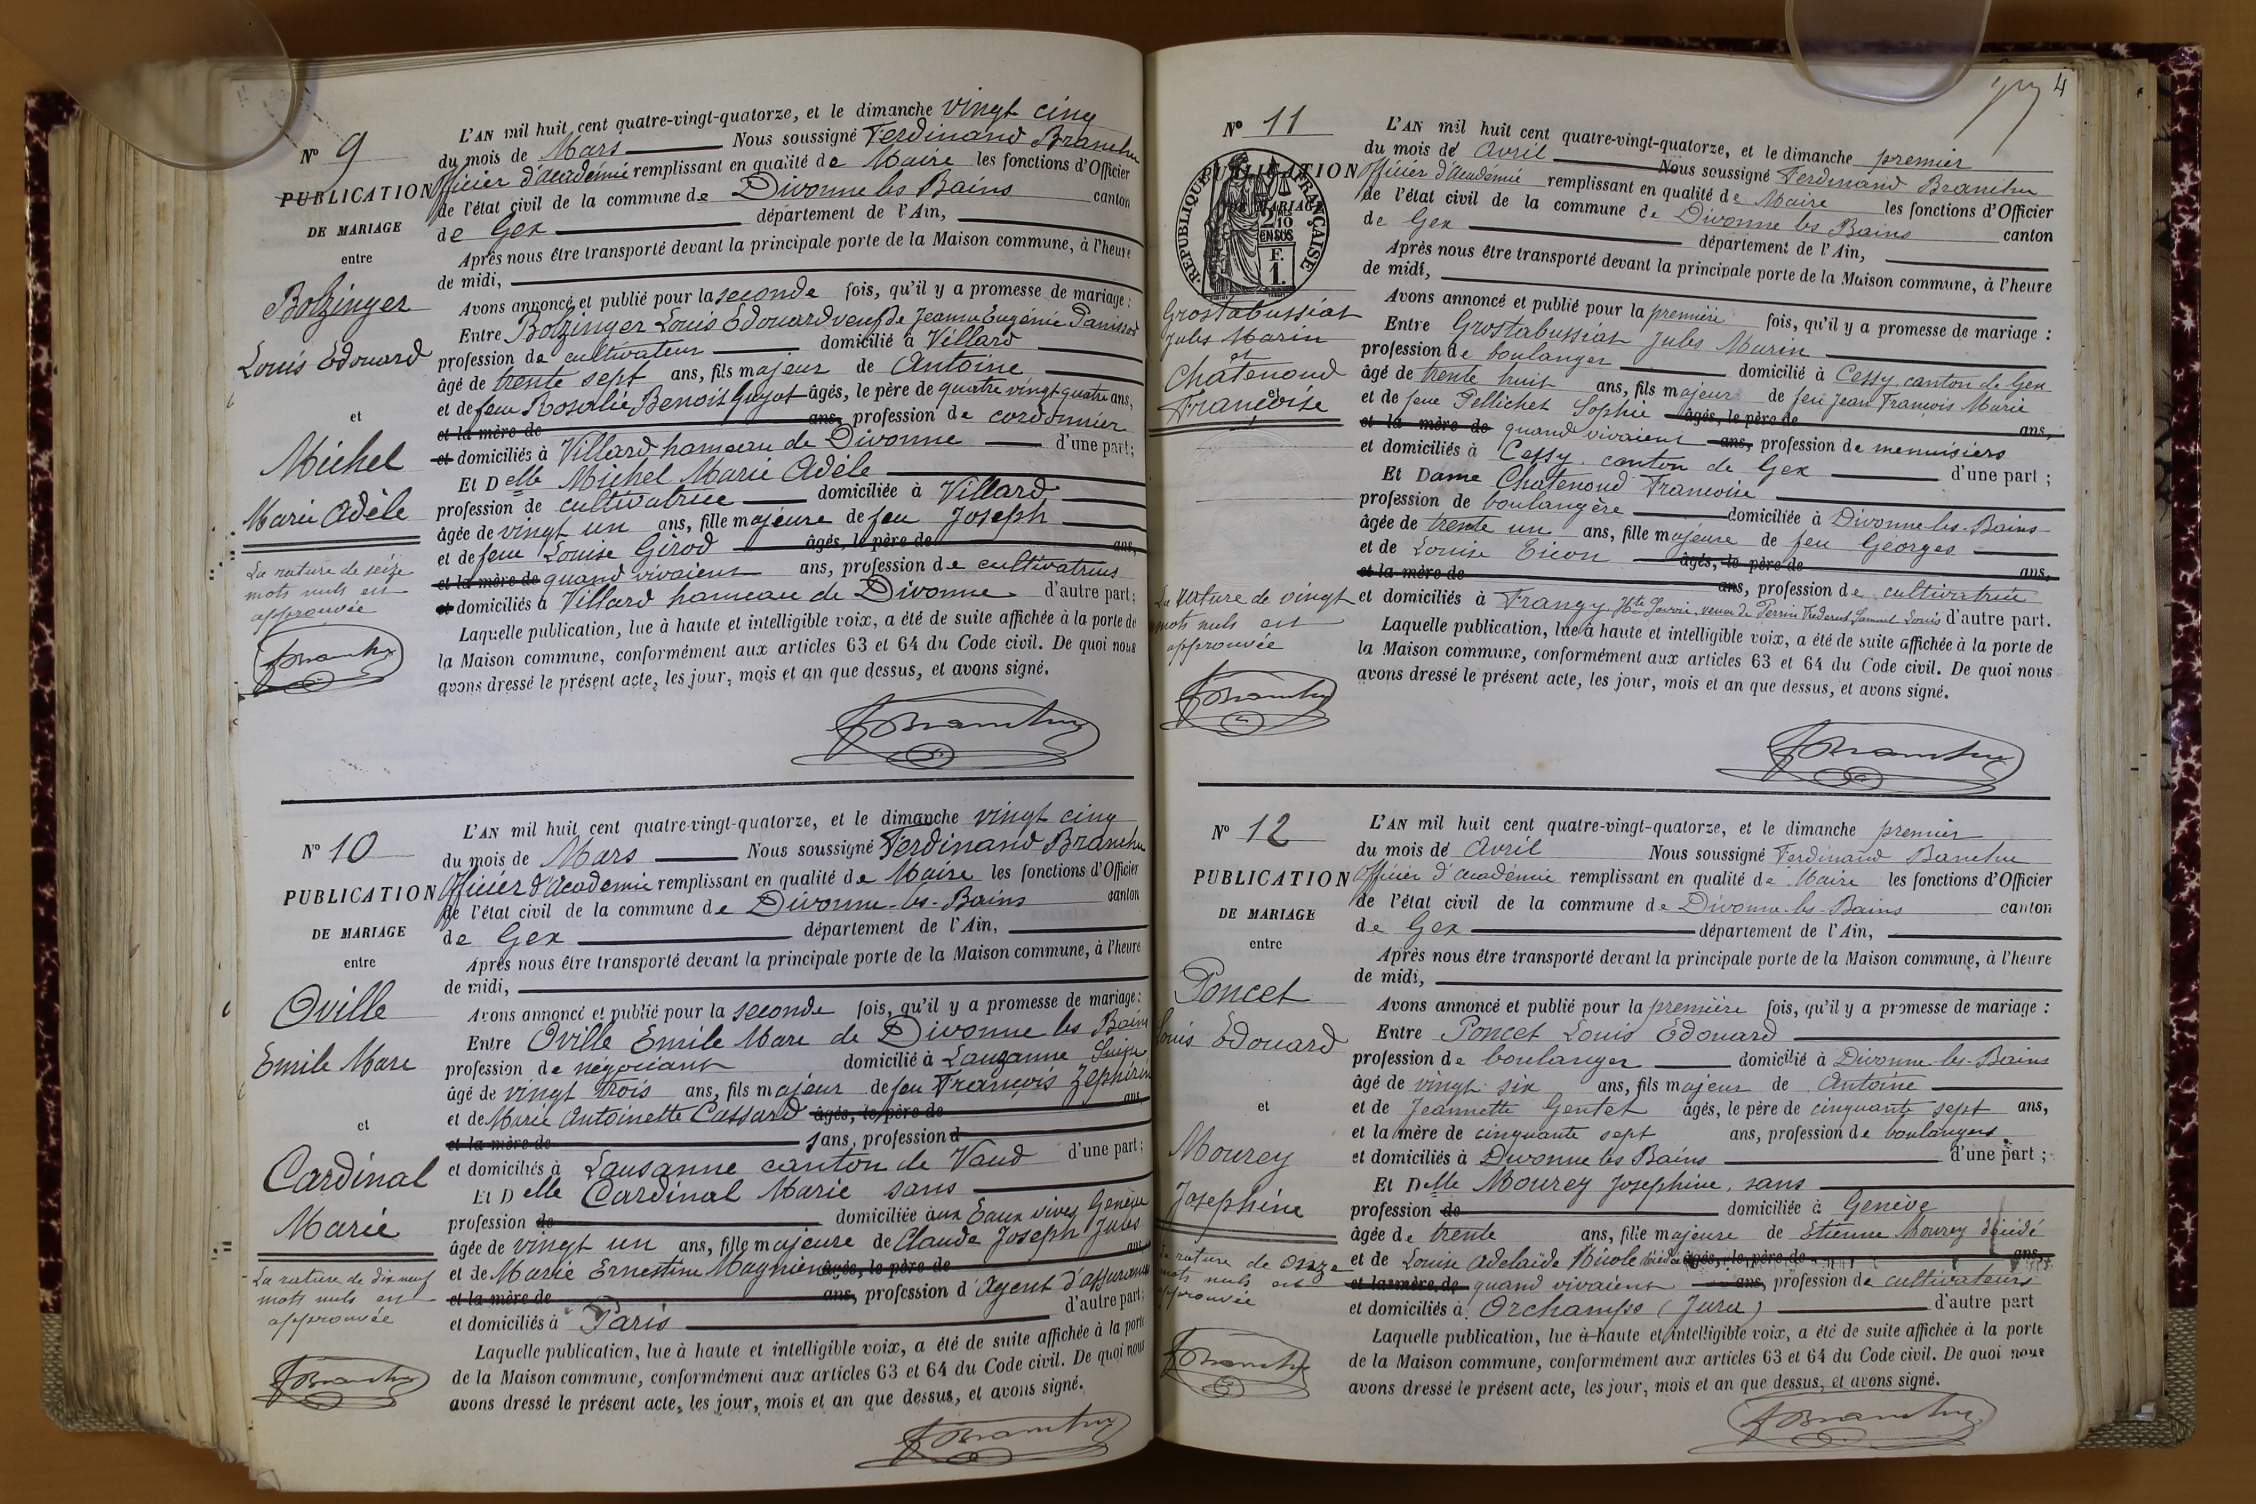 Nº 9
PUBLICATION
DE MARIAGE
entre
Bolzinger
Louis Edouard
et
Michel
Marie Adèle
La rature de seize
mots nuls est
approuvée
L'AN mil huit cent quatre-vingt-quatorze, et le dimanche vingt cinq
du mois de Mars Nous soussigné Ferdinand Branchu
Officier d'Académie remplissant en qualité de Maire les fonctions d'Officier
de l'état civil de la commune de Divonne les Bains canton
de Gex département de l'Ain,
Après nous être transporté devant la principale porte de la Maison commune, à l'heure
de midi,
Avons annoncé et publié pour la seconde fois, qu'il y a promesse de mariage :
Entre Bolzinger Louis Edouard veuf de Jeanne Eugénie Panissod
profession de cultivateur domicilié à Villard
âgé de trente sept ans, fils majeur de Antoine
et de feue Rosalie Benoit Guyot âgés, le père de quatre vingt quatre ans,
et la mère de ans, profession de cordonnier
et domiciliés à Villard hameau de Divonne d'une part;
Et Delle Michel Marie Adèle
profession de cultivatrice domiciliée à Villard
âgée de vingt un ans, fille majeure de feu Joseph
et de feue Louise Girod âgés, le père de ans,
et la mère de quand vivaient ans, profession de cultivateurs
et domiciliés à Villard hameau de Divonne d'autre part;
Laquelle publication, lue à haute et intelligible voix, a été de suite affichée à la porte de
la Maison commune, conformément aux articles 63 et 64 du Code civil. De quoi nous
avons dressé le présent acte, les jour, mois et an que dessus, et avons signé.
FBranchu
Nº 10
PUBLICATION
DE MARIAGE
entre
Oville
Emile Marc
et
Cardinal
Marie
La rature de dix neuf
mots nuls est
approuvée
FBranchu
L'AN mil huit cent quatre-vingt-quatorze, et le dimanche vingt cinq
du mois de Mars Nous soussigné Ferdinand Branchu
Officier d'Academie remplissant en qualité de Maire les fonctions d'Officier
de l'état civil de la commune de Divonne-les-Bains canton
de Gex département de l'Ain,
Après nous être transporté devant la principale porte de la Maison commune, à l'heure
de midi,
Avons annoncé et publié pour la seconde fois, qu'il y a promesse de mariage :
Entre Oville Emile Marc de Divonne les Bains
profession de négociant domicilié à Lauzanne Suisse
âgé de vingt trois ans, fils majeur de feu François Zéphirin
et de Marie Antoinette Cassard âgés, le père de ans,
et la mère de sans, profession d
et domiciliés à Lausanne canton de Vaud d'une part;
Et Delle Cardinal Marie sans
profession de domiciliée aux Eaux vives Genève
âgée de vingt un ans, fille majeure de Claude Joseph Jules
et de Marie Ernestine Magnien âgés, le père de ans
et la mère de ans, profession d'Agent d'assurances
et domiciliés à Paris d'autre part;
Laquelle publication, lue à haute et intelligible voix, a été de suite affichée à la porte
de la Maison commune, conformément aux articles 63 et 64 du Code civil. De quoi nous
avons dressé le présent acte, les jour, mois et an que dessus, et avons signé.
FBranchu
4
Nº 11
PUBLICATION
DE MARIAGE
RÉPUBLIQUE FRANÇAISE
2/10 EN SUS
F. 1.
Grostabussiat
Jules Marin
et
Chatenoud
Françoise
La rature de vingt
mots nuls est
approuvée
FBranchu
L'AN mil huit cent quatre-vingt-quatorze, et le dimanche premier
du mois de Avril Nous soussigné Ferdinand Branchu
Officier d'Académie remplissant en qualité de Maire les fonctions d'Officier
de l'état civil de la commune de Divonne les Bains canton
de Gex département de l'Ain,
Après nous être transporté devant la principale porte de la Maison commune, à l'heure
de midi,
Avons annoncé et publié pour la première fois, qu'il y a promesse de mariage :
Entre Grostabussiat Jules Marin
profession de boulanger domicilié à Cessy canton de Gex
âgé de trente huit ans, fils majeur de feu Jean François Marie
et de feue Pellichet Sophie âgés, le père de ans,
et la mère de quand vivaient ans, profession de menuisiers
et domiciliés à Cessy canton de Gex d'une part;
Et Dame Chatenoud Françoise
profession de boulangère domiciliée à Divonne-les-Bains
âgée de trente un ans, fille majeure de feu Georges
et de Louise âgés, le père de ans,
et la mère de ans, profession de cultivatrice
et domiciliés à Frangy Hte Savoie, veuve de Perrin Samuel Louis d'autre part.
Laquelle publication, lue à haute et intelligible voix, a été de suite affichée à la porte de
la Maison commune, conformément aux articles 63 et 64 du Code civil. De quoi nous
avons dressé le présent acte, les jour, mois et an que dessus, et avons signé.
FBranchu
Nº 12
PUBLICATION
DE MARIAGE
entre
Poncet
Louis Edouard
et
Mourey
Josephine
La rature de onze
mots nuls est
approuvée
FBranchu
L'AN mil huit cent quatre-vingt-quatorze, et le dimanche premier
du mois de Avril Nous soussigné Ferdinand Banchu
Officier d'académie remplissant en qualité de Maire les fonctions d'Officier
de l'état civil de la commune de Divonne-les-Bains canton
de Gex département de l'Ain,
Après nous être transporté devant la principale porte de la Maison commune, à l'heure
de midi,
Avons annoncé et publié pour la première fois, qu'il y a promesse de mariage :
Entre Poncet Louis Edouard
profession de boulanger domicilié à Divonne-les-Bains
âgé de vingt six ans, fils majeur de Antoine
et de Jeannette Gentet âgés, le père de cinquante sept ans,
et la mère de cinquante sept ans, profession de boulangers
et domiciliés à Divonne les Bains d'une part;
Et Delle Mourey Josephine, sans
profession de domiciliée à Genève
âgée de trente ans, fille majeure de Etienne Mourey décédé
et de Louise Adelaïde Nicole décédée âgés, le père de ans,
et la mère de quand vivaient ans, profession de cultivateurs
et domiciliés à Orchamps (Jura) d'autre part
Laquelle publication, lue à haute et intelligible voix, a été de suite affichée à la porte
de la Maison commune, conformément aux articles 63 et 64 du Code civil. De quoi nous
avons dressé le présent acte, les jour, mois et an que dessus, et avons signé.
FBranchu